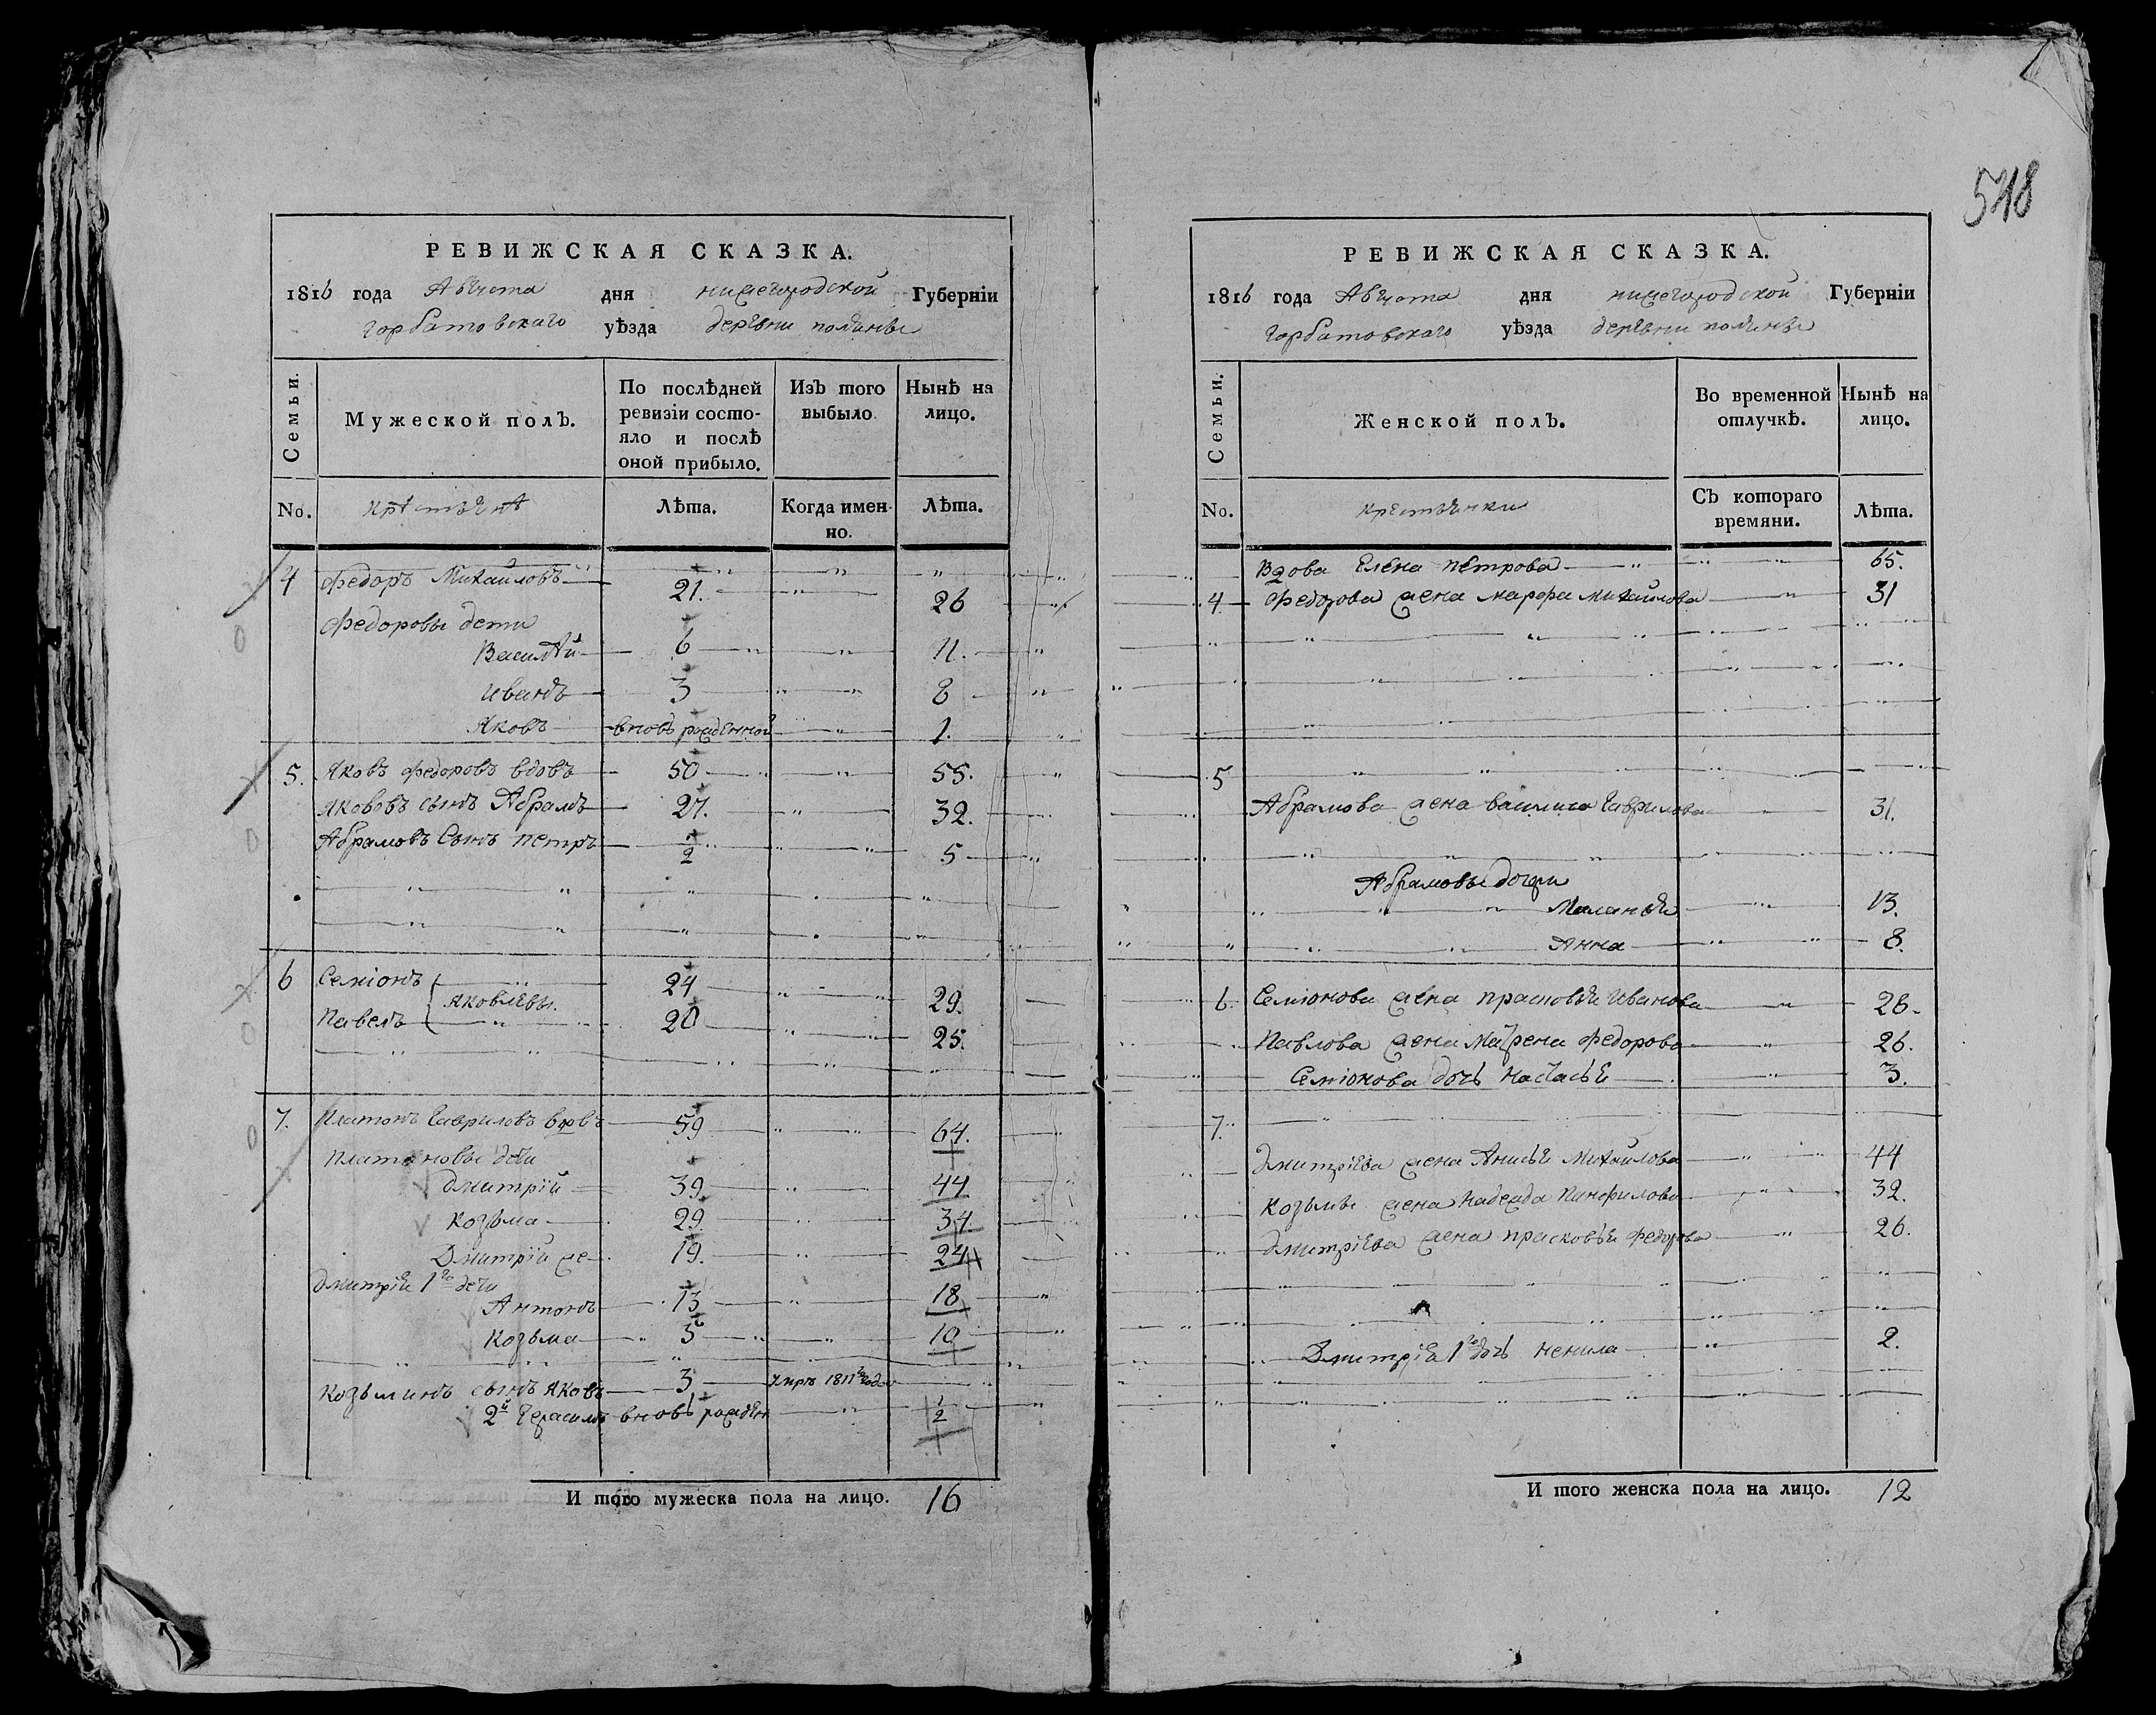 548
РЕВИЖСКАЯ СКАЗКА.
1816 года Августа дня нижегородской Губерніи
горбатовскаго уѣзда деревни
Семьи.
Мужеской полъ.
По послѣдней ревизіи состояло и послѣ оной прибыло.
Изъ того выбыло
Нынѣ на лицо.
No.
Лѣта.
Когда именно.
Лѣта.
4 федоръ Михайловъ 21. 26
федоровы дети
Василий 6 11.
иванъ 3 8
Яковъ вновь рожденной 1.
5. Яковъ федоровъ вдовъ 50 55.
Яковъ сынъ Абрамъ 27. 32.
Абрамовъ сынъ петръ 1/2 5
6 Семіонъ 24 29.
Яковлевы.
Павелъ 20 25.
7. Платонъ Гавриловъ вдовъ 59 64.
платоновы дети
дмитрій 39. 44
козьма 29. 34.
Дмитрій же 19. 24
дмитрія 1го дети
Антонъ 13 18
козьма 5 10
козьминъ сынъ яковъ 3 умре 1811го года
2й Герасимъ вновь рожден 1/2
И того мужеска пола на лицо. 16
РЕВИЖСКАЯ СКАЗКА.
1816 года Августа дня нижегородской Губерніи
горбатовскаго уѣзда деревни
Семьи.
Женской полъ.
Во временной отлучкѣ.
Нынѣ на лицо.
No.
крестьянки
Съ котораго времяни.
Лѣта.
Вдова Елена петрова 65.
4 федорова жена марфа михайлова 31
5
Абрамова жена василиса Гаврилова 31.
Абрамовы дочери
Маланья 13.
Анна 8.
6. Семіонова жена прасковья иванова 28.
Павлова жена Матрена федорова 26.
Семіонова дочь настасья 3.
7.
дмитріева жена Анисья михайлова 44
козьмы жена надежда панфилова 32.
дмитріева жена прасковья федорова 26.
Дмитрія 1го дочь ненила 2.
И того женска пола на лицо. 12